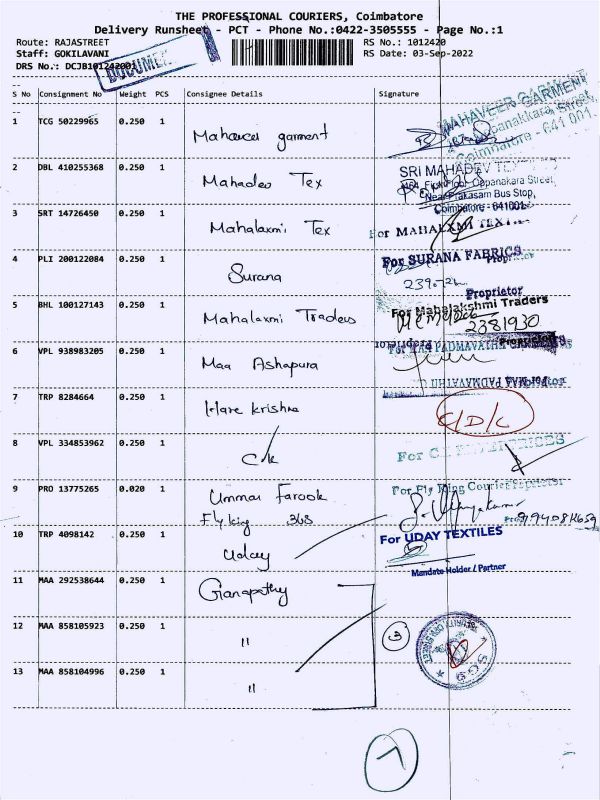 THE PROFESSIONAL COURIERS, Coimbatore
Delivery Runsheet - PCT - Phone No.:0422-3505555 - Page No.:1
Route: RAJASTREET RS No.: 1012420
Staff: GOKILAVANI RS Date: 03-Sep-2022
DRS No.: DCJB101242001
DOCUMEN
S No Consignment No Weight PCS Consignee Details Signature
1 TCG 50229965 0.250 1 Mahaveer garment
MAHAVEER GARMENT
Oppanakkara Street,
Coimbatore - 641 001.
2 DBL 410255368 0.250 1 Mahadev Tex
SRI MAHADEV
Oppanakara Street,
Near Prakasam Bus Stop,
Coimbatore - 641001
3 SRT 14726450 0.250 1 Mahalaxmi Tex
For MAHALXMI TEX
4 PLI 200122084 0.250 1 Surana
For SURANA FABRICS
Proprietor
5 BHL 100127143 0.250 1 Mahalaxmi Traders
For Mahalakshmi Traders
2381930
Proprietor
6 VPL 938983205 0.250 1 Maa Ashapura
PADMAVATHI
7 TRP 8284664 0.250 1 Hare krishna
C/D/C
8 VPL 334853962 0.250 1 C/K
9 PRO 13775265 0.020 1 Ummar Farook
Fly king 365
For Fly King Courier
10 TRP 4098142 0.250 1 Uday
For UDAY TEXTILES
Mandate Holder / Partner
11 MAA 292538644 0.250 1 Ganapathy
12 MAA 858105923 0.250 1 "
3
13 MAA 858104996 0.250 1 "
7